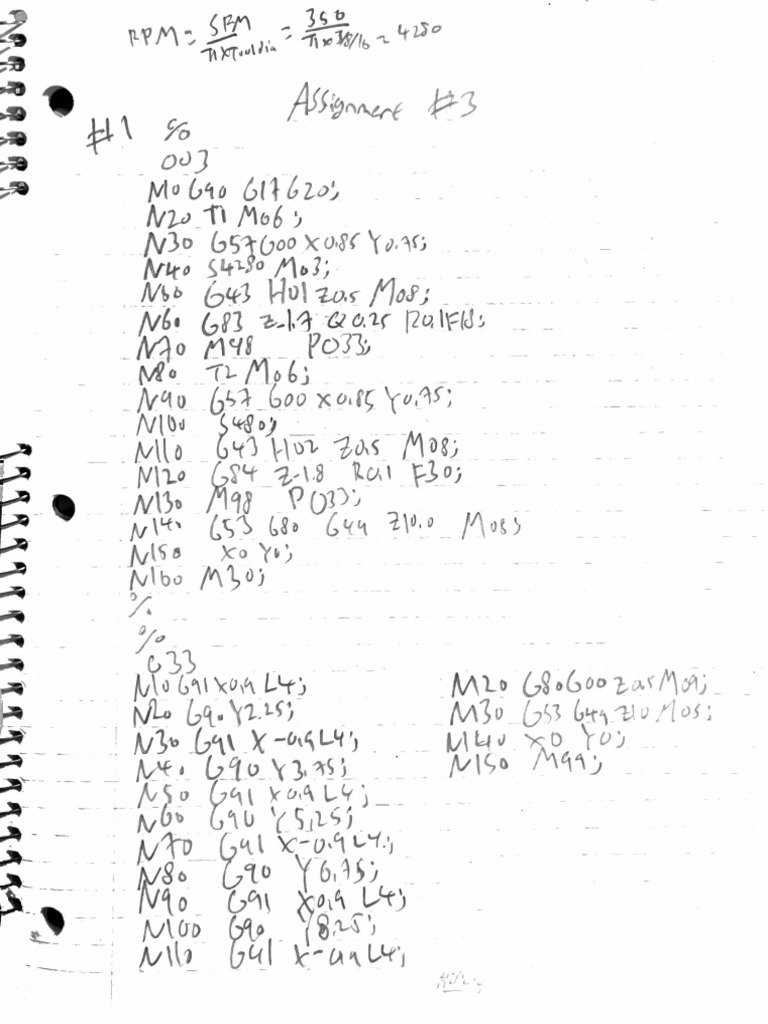 RPM = SFM / π x Tool dia = 350 / π x 3/8/16 = 4280
Assignment #3
#1 %
003
M0 G90 G17 G20;
N20 T1 M06;
N30 G57 G00 X0.85 Y0.75;
N40 S4280 M03;
N50 G43 H01 Z0.5 M08;
N60 G83 Z-1.7 Q0.25 R0.1 F18;
N70 M98 P033;
N80 T2 M06;
N90 G57 G00 X0.85 Y0.75;
N100 S480;
N110 G43 H02 Z0.5 M08;
N120 G84 Z-1.8 R0.1 F30;
N130 M98 P033;
N140 G53 G80 G49 Z10.0 M05;
N150 X0 Y0;
N160 M30;
%
%
033
N10 G91 X0.9 L4;
N20 G90 Y2.25;
N30 G91 X-0.9 L4;
N40 G90 Y3.75;
N50 G91 X0.9 L4;
N60 G90 Y5.25;
N70 G91 X-0.9 L4;
N80 G90 Y6.75;
N90 G91 X0.9 L4;
N100 G90 Y8.25;
N110 G91 X-0.9 L4;
M20 G80 G00 Z0.5 M09;
M30 G53 G49 Z10 M05;
M140 X0 Y0;
N150 M99;